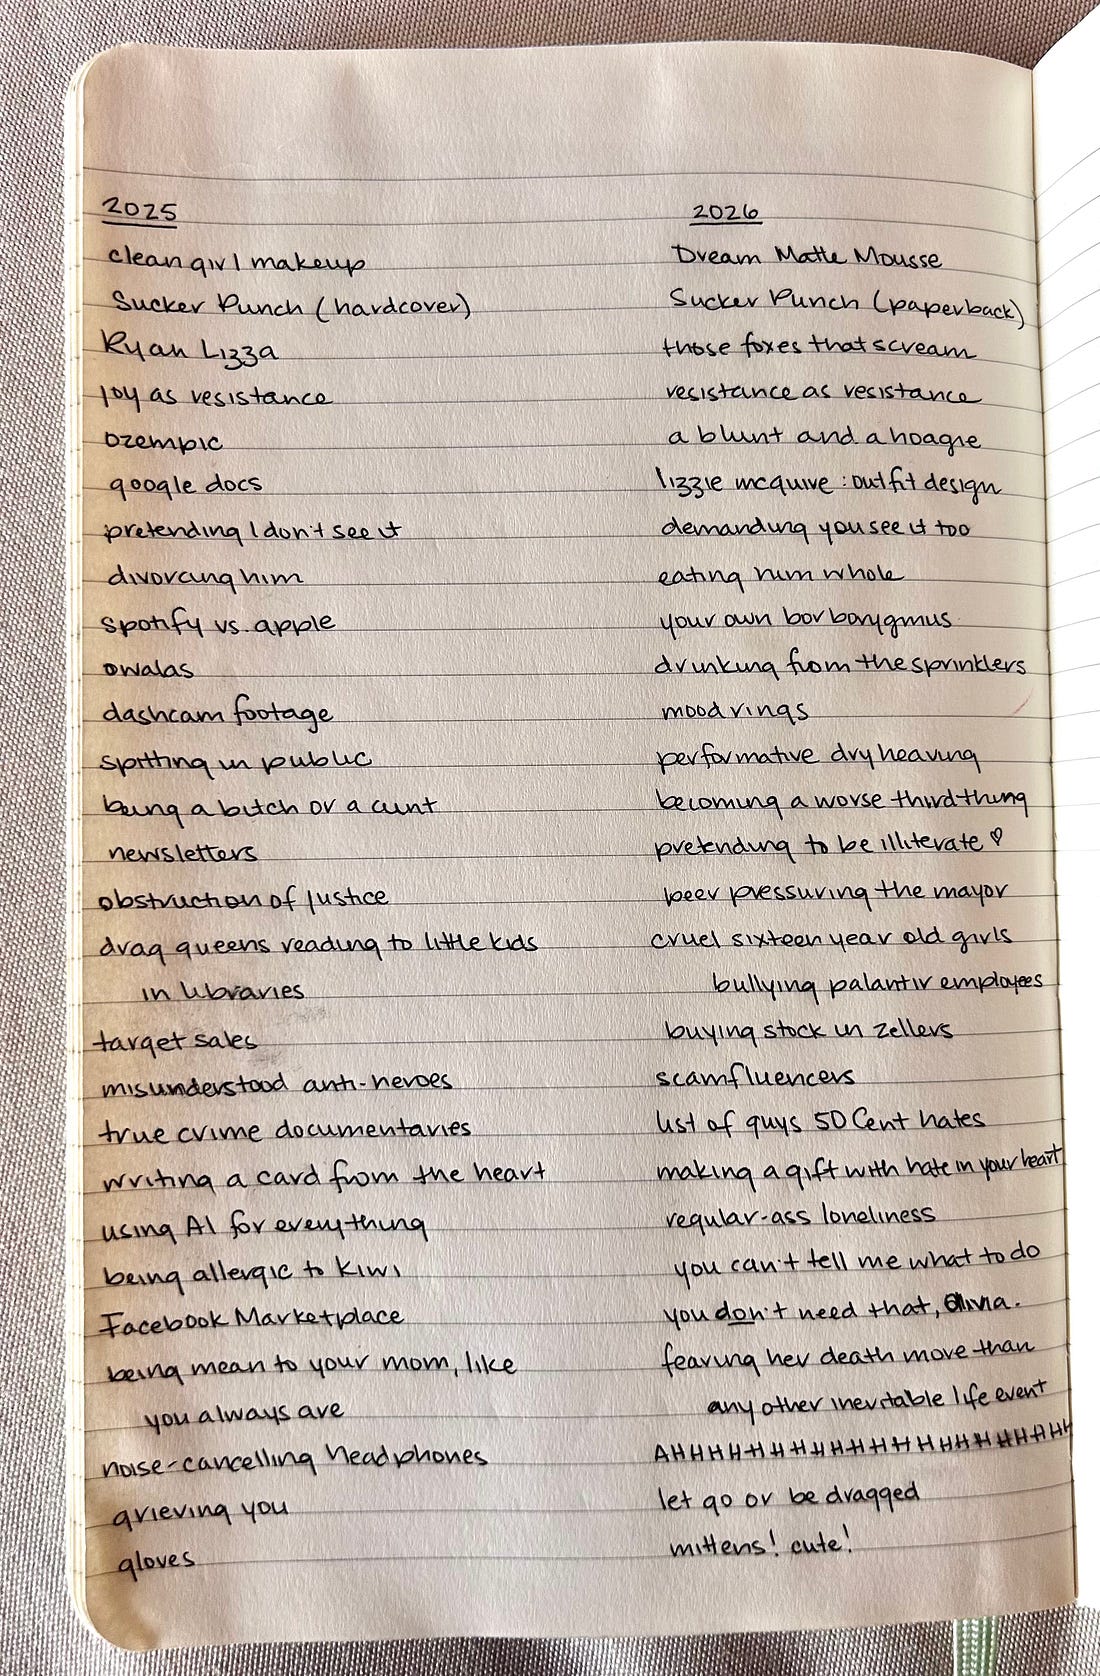 2025 2026
clean girl makeup Dream Matte Mousse
Sucker Punch (hardcover) Sucker Punch (paperback)
Ryan Lizza those foxes that scream
joy as resistance resistance as resistance
ozempic a blunt and a hoagie
google docs lizzie mcguire : outfit design
pretending I don't see it demanding you see it too
divorcing him eating him whole
spotify vs. apple your own borborygmus
owalas drinking from the sprinklers
dashcam footage mood rings
spitting in public performative dry heaving
being a bitch or a cunt becoming a worse third thing
newsletters pretending to be illiterate ♡
obstruction of justice peer pressuring the mayor
drag queens reading to little kids cruel sixteen year old girls
in libraries bullying palantir employees
target sales buying stock in zellers
misunderstood anti-heroes scamfluencers
true crime documentaries list of guys 50 Cent hates
writing a card from the heart making a gift with hate in your heart
using AI for everything regular-ass loneliness
being allergic to kiwi you can't tell me what to do
Facebook Marketplace you don't need that, Olivia.
being mean to your mom, like fearing her death more than
you always are any other inevitable life event
noise-cancelling headphones AHHHHHHHHHHHHHHHHHHHH
grieving you let go or be dragged
gloves mittens! cute!